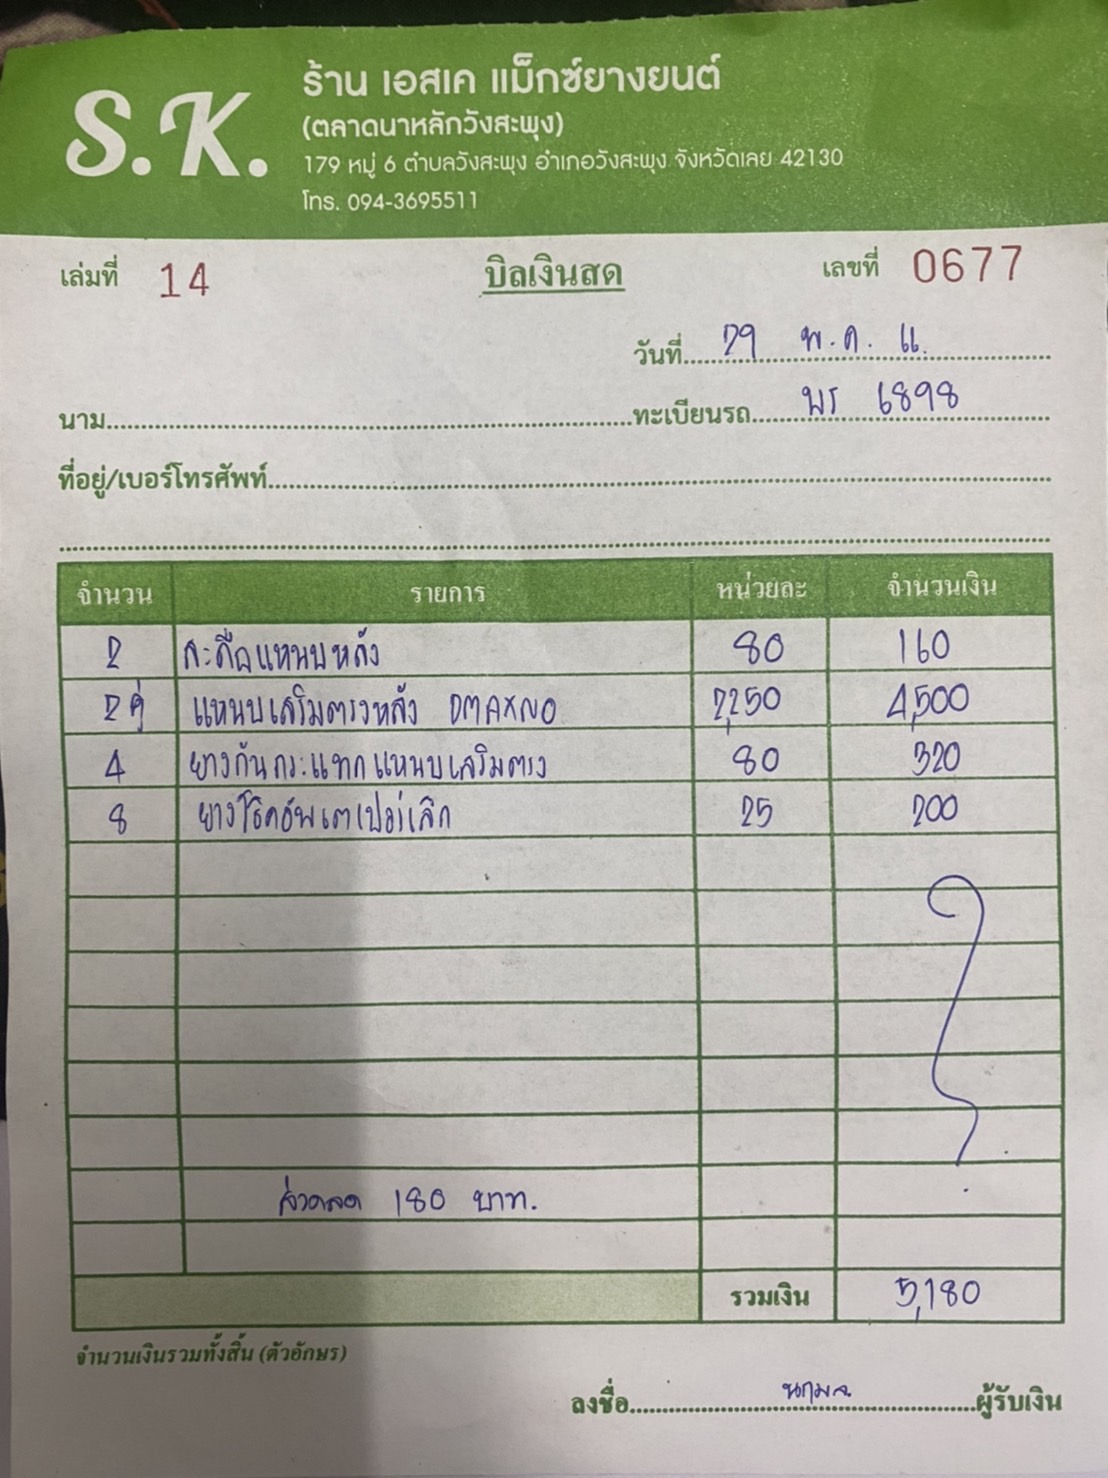 S.K.
ร้าน เอสเค แม็กซ์ยางยนต์
(ตลาดนาหลักวังสะพุง)
179 หมู่ 6 ตำบลวังสะพุง อำเภอวังสะพุง จังหวัดเลย 42130
โทร. 094-3695511
เล่มที่ 14 บิลเงินสด เลขที่ 0677
วันที่ 29 พ.ค.
นาม ทะเบียนรถ พร 6898
ที่อยู่/เบอร์โทรศัพท์
จำนวน รายการ หน่วยละ จำนวนเงิน
2 สะดือแหนบหลัง 80 160
2คู่ แหนบเสริมตรงหลัง DMAX 2,250 4,500
4 ยางกันกระแทกแหนบเสริมตรง 80 320
8 25 200
ส่วนลด 180 บาท.
รวมเงิน 5,180
จำนวนเงินรวมทั้งสิ้น (ตัวอักษร)
ลงชื่อ ผู้รับเงิน